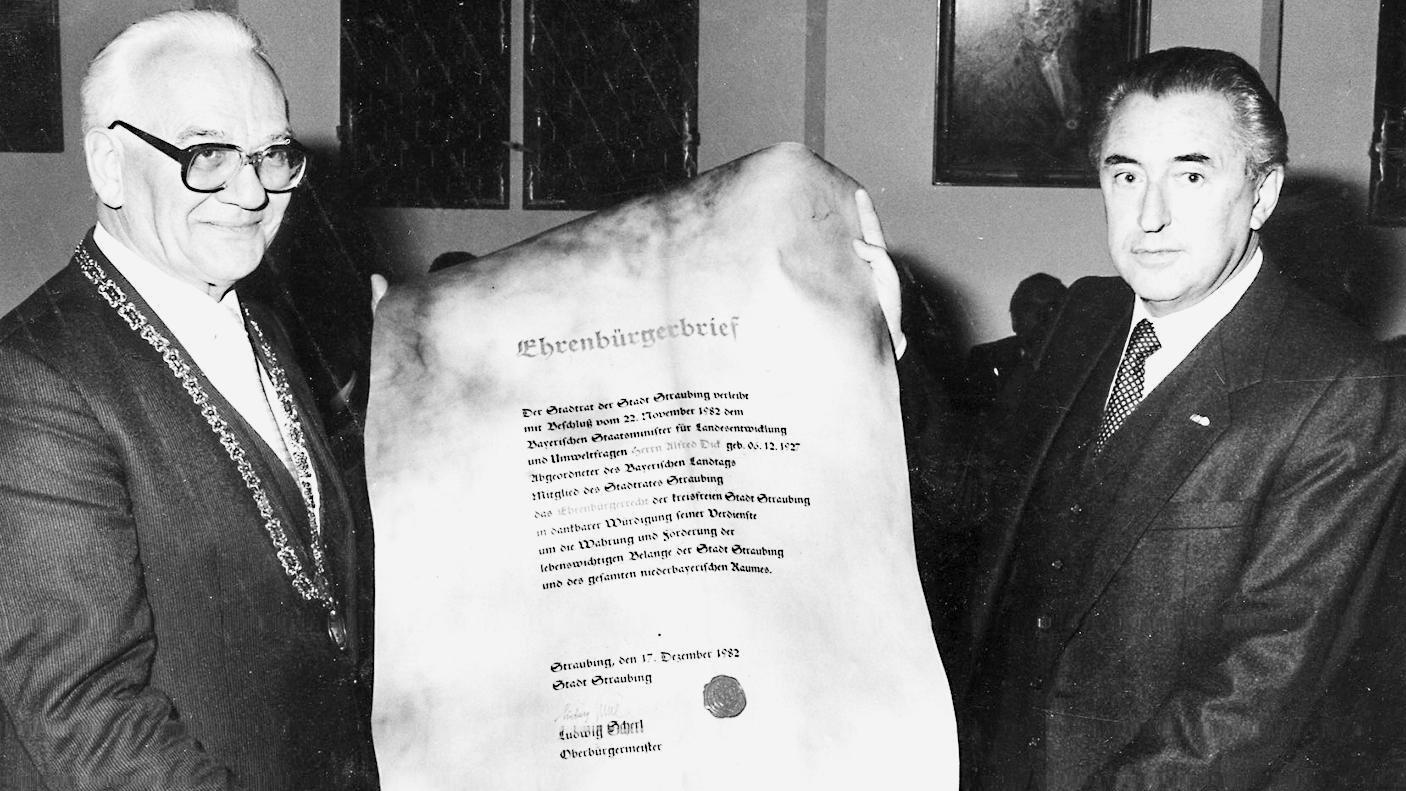 Ehrenbürgerbrief
Der Stadtrat der Stadt Straubing verleiht
mit Beschluß vom 22. November 1982 dem
Bayerischen Staatsminister für Landesentwicklung
und Umweltfragen Herrn Alfred Dick geb. 06. 12. 1927
Abgeordneter des Bayerischen Landtags
Mitglied des Stadtrates Straubing
das Ehrenbürgerrecht der kreisfreien Stadt Straubing
in dankbarer Würdigung seiner Verdienste
um die Wahrung und Förderung der
lebenswichtigen Belange der Stadt Straubing
und des gesamten niederbayerischen Raumes.
Straubing, den 17. Dezember 1982
Stadt Straubing
Ludwig Scherl
Oberbürgermeister